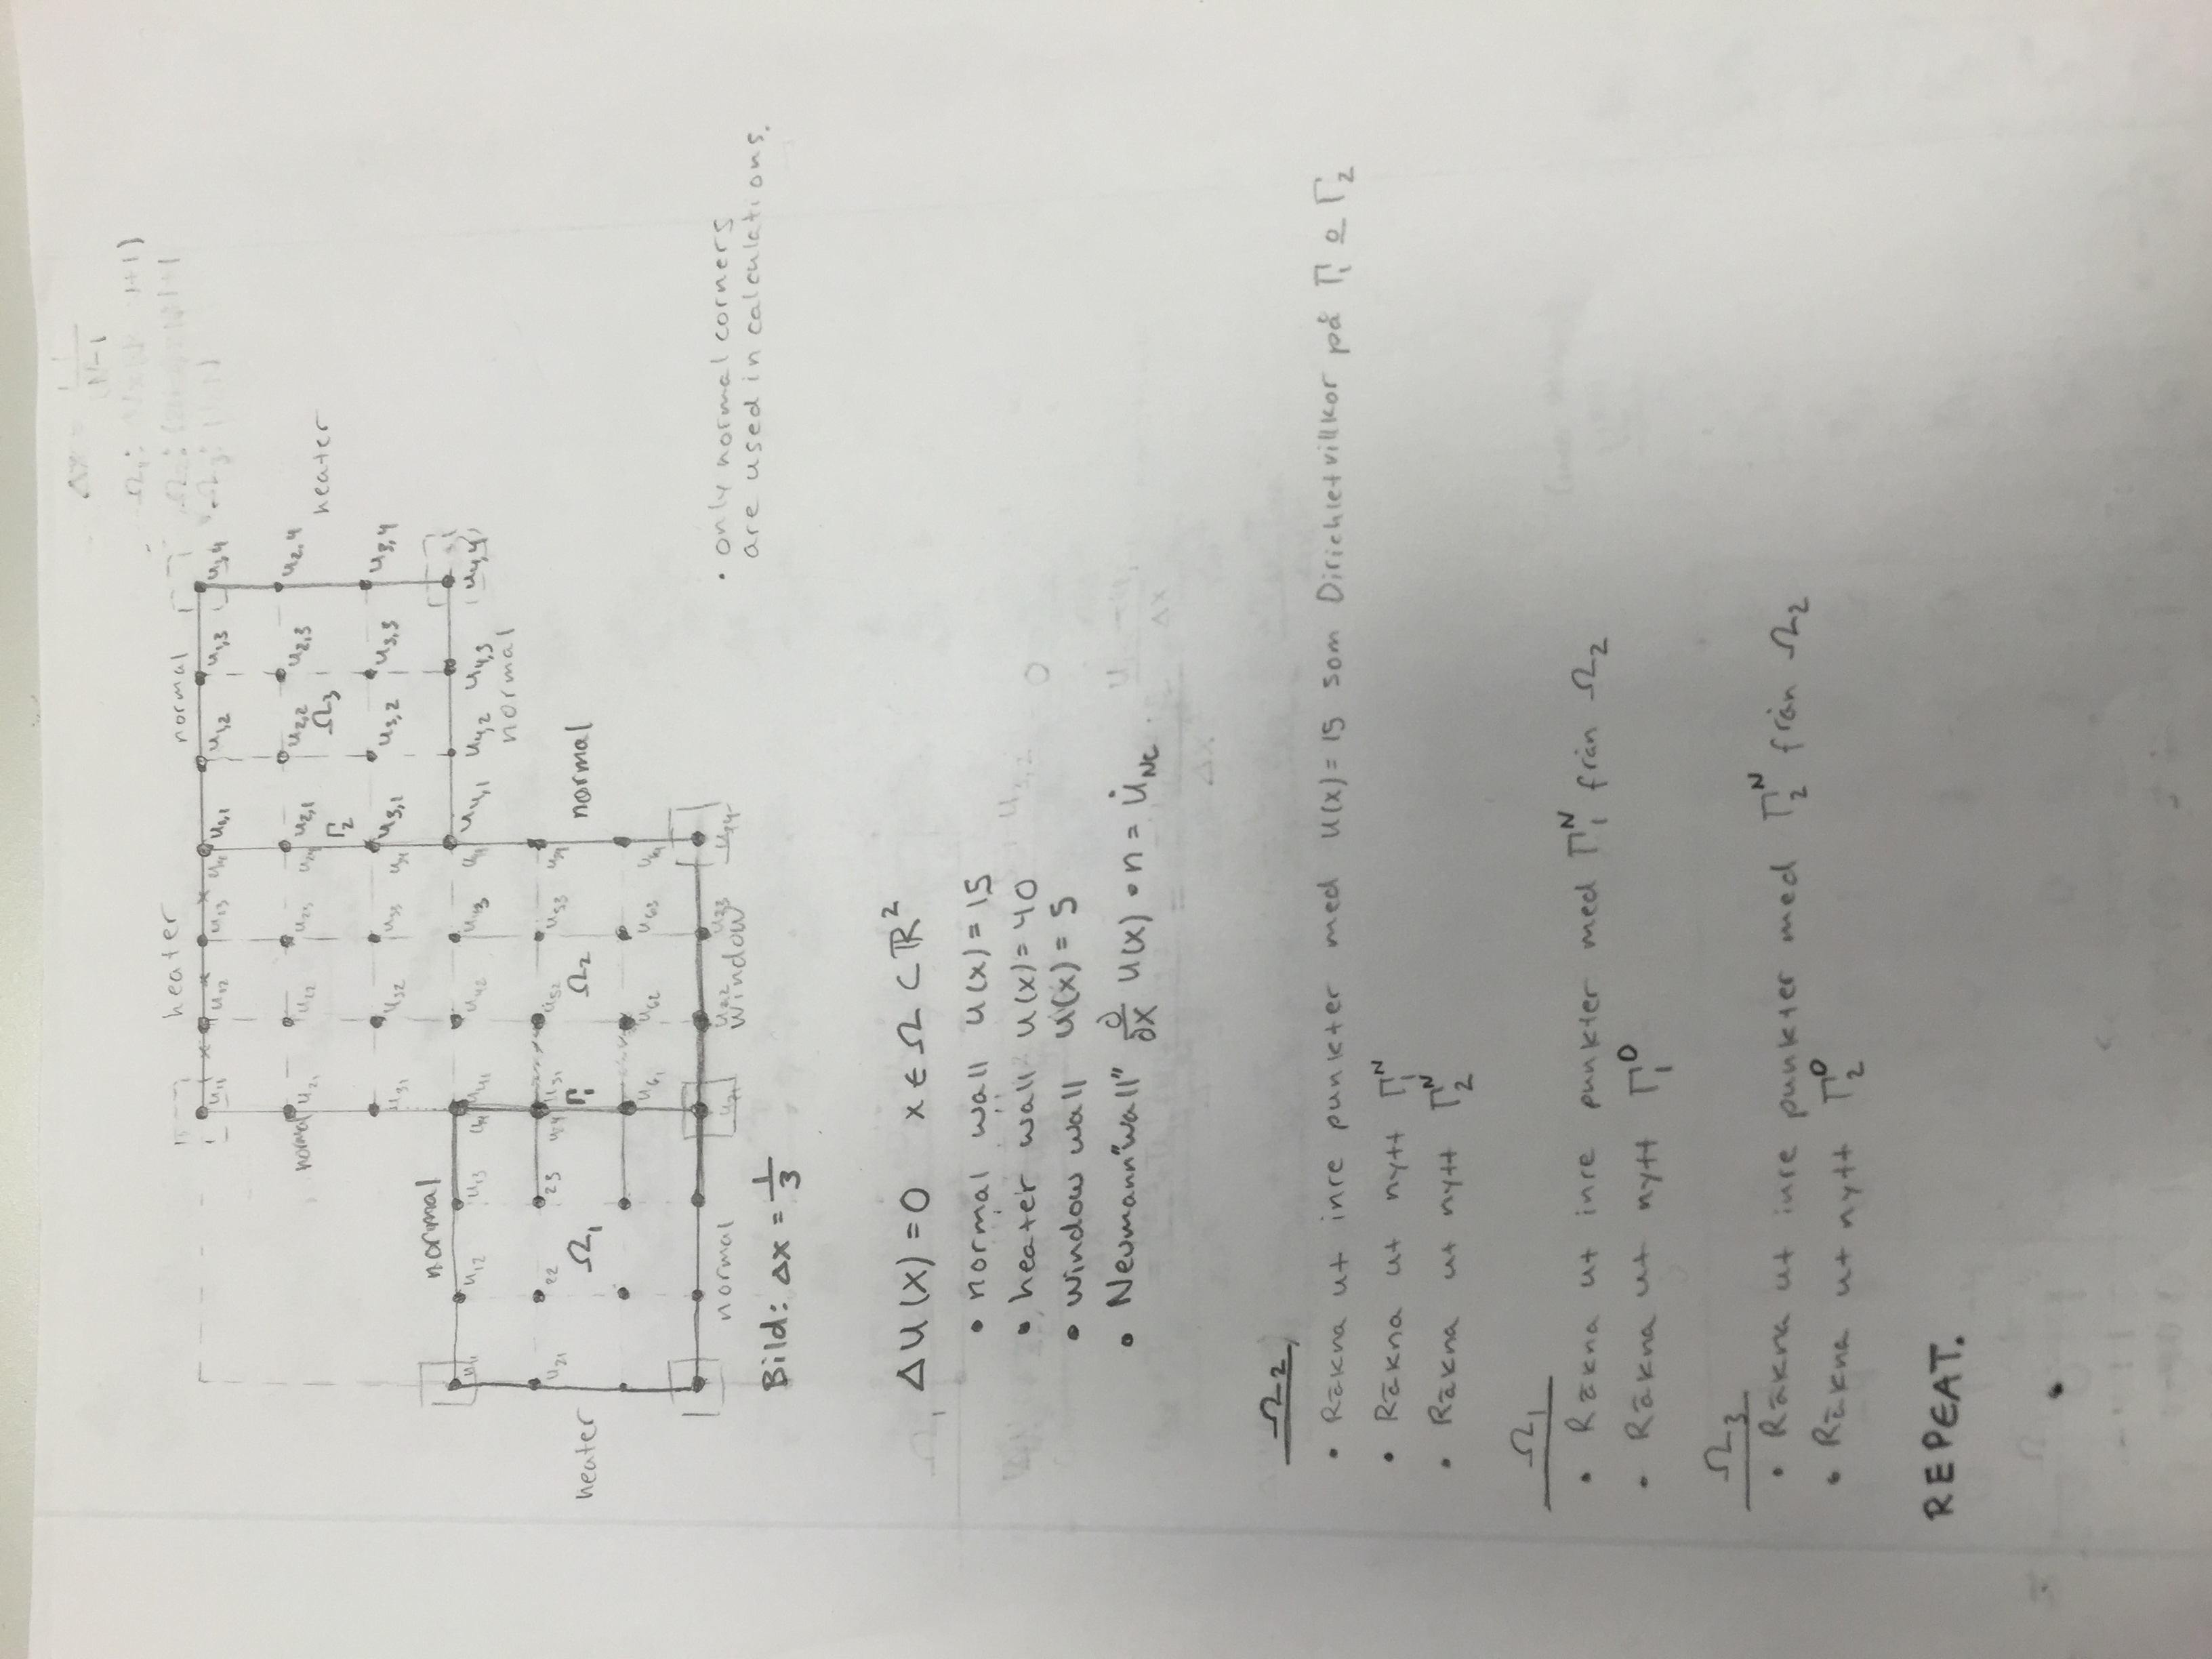 Δx = 1/(N-1)
heater
normal
u11 u12 u13 u14 u1,1 u1,2 u1,3 u3,4
normal u21 u22 u23 u24 u2,1 u2,2 u2,3 u2,4
Ω3 heater
Γ2
u31 u32 u33 u34 u3,1 u3,2 u3,3 u3,4
normal
u11 u12 u13 u14 u41 u42 u43 u44 u4,1 u4,2 u4,3 u4,4
normal
u21 22 23 u24 u51 u52 u53 u54
heater Ω1 Γ1 Ω2 normal
u61 u62 u63 u64
u71 u74
normal window
• only normal corners
are used in calculations.
Bild: Δx = 1/3
Δu(x) = 0 x ∈ Ω ⊂ ℝ²
• normal wall u(x) = 15
• heater wall u(x) = 40
• window wall u(x) = 5
• Neumann "wall" ∂/∂x u(x) • n = u̇NC
Ω2
• Räkna ut inre punkter med u(x) = 15 som Dirichletvillkor på Γ1 o Γ2
• Räkna ut nytt Γ1^N
• Räkna ut nytt Γ2^N
Ω1
• Räkna ut inre punkter med Γ1^N från Ω2
• Räkna ut nytt Γ1^D
Ω3
• Räkna ut inre punkter med Γ2^N från Ω2
• Räkna ut nytt Γ2^D
REPEAT.